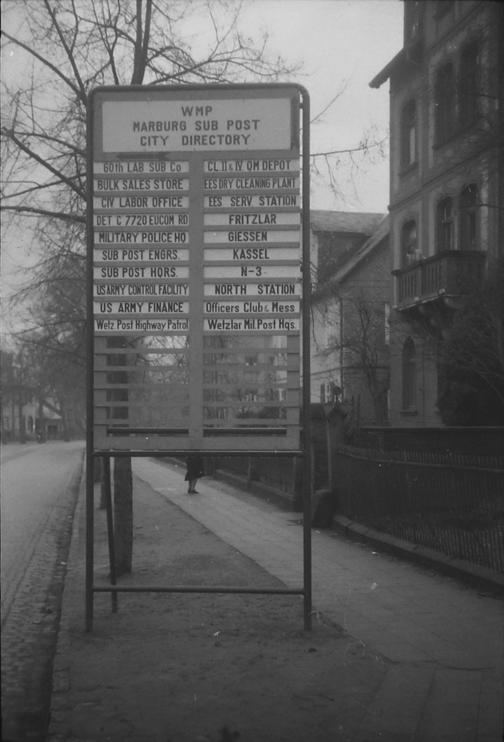 WMP
MARBURG SUB POST
CITY DIRECTORY
60th LAB SUB Co
BULK SALES STORE
CIV LABOR OFFICE
DET C 7720 EUCOM RD
MILITARY POLICE HQ
SUB POST ENGRS.
SUB POST HQRS.
US ARMY CONTROL FACILITY
US ARMY FINANCE
Wetz Post Highway Patrol
CL. II & IV QM DEPOT
EES DRY CLEANING PLANT
EES SERV STATION
FRITZLAR
GIESSEN
KASSEL
N-3
NORTH STATION
Officers Club & Mess
Wetzlar Mil. Post Hqs.